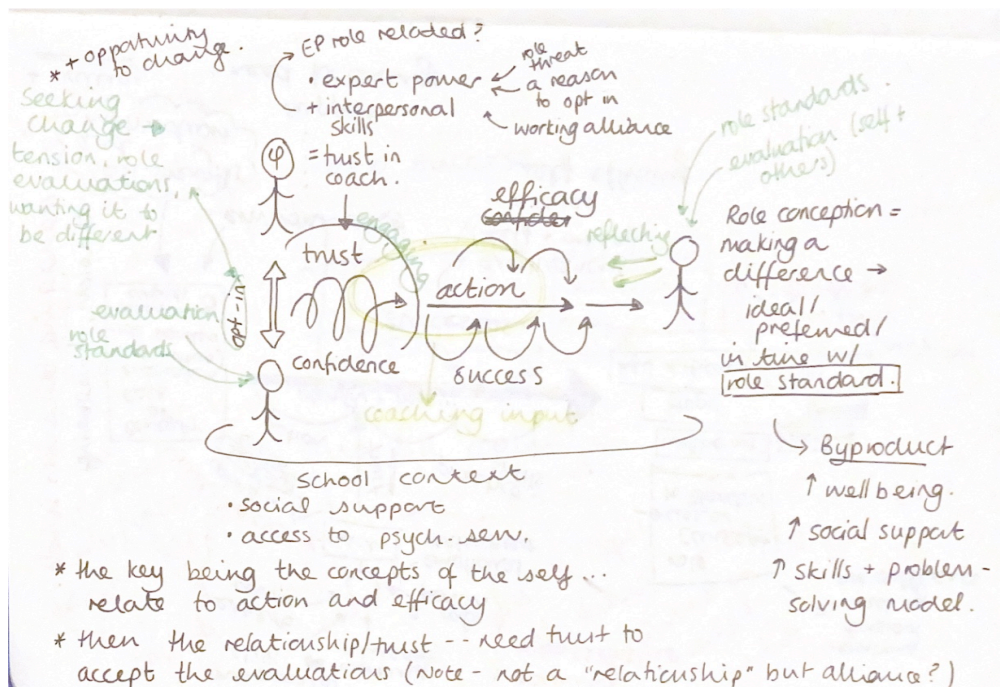 * + oppatunity
to change.
Seeking
change →
tension, role
evaluations,
wanting it to
be different
EP role related?
• expert power
+ interpersonal
skills
= trust in
coach.
role
threat
a reason
to opt in
working alliance
role standards.
evaluation (self +
others)
ψ
trust
engaging
efficacy
action
reflecting
opt-in*
evaluation
role
standards
confidence
success
coaching input
Role conception =
making a
difference →
ideal/
preferred/
in tune w/
role standard.
school context
• social support
• access to psych. serv.
→ Byproduct
↑ wellbeing.
↑ social support
↑ skills + problem-
solving model.
* the key being the concepts of the self...
relate to action and efficacy
* then the relationship/trust -- need trust to
accept the evaluations (Note - not a "relationship" but alliance?)